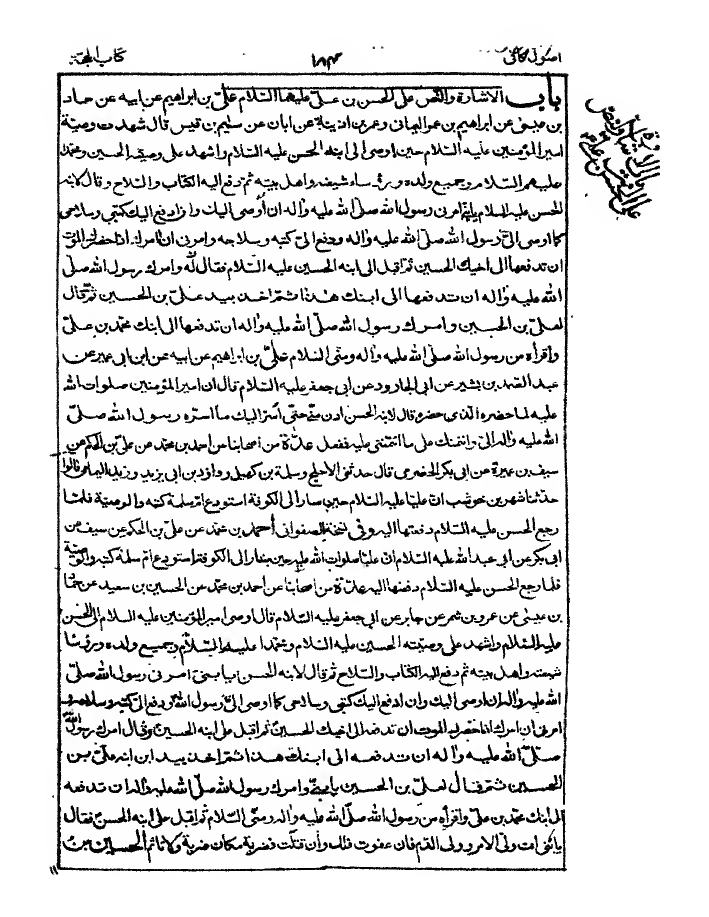 اصول كافى ١٨٤ كتاب الحجة
باب الاشارة والنص على الحسن بن على عليهما السلام على بن ابراهيم عن ابيه عن حماد
بن عيسى عن ابراهيم بن عمر اليمانى وعمر بن اذينة عن ابان عن سليم بن قيس قال شهدت وصية
امير المؤمنين عليه السلام حين اوصى الى ابنه الحسن عليه السلام واشهد على وصيته الحسين ومحمدا
عليهم السلام وجميع ولده ورؤساء شيعته واهل بيته ثم دفع اليه الكتاب والسلاح وقال لابنه
الحسن عليه السلام يا بنى امرنى رسول الله صلى الله عليه واله ان اوصى اليك وان ادفع اليك كتبى وسلاحى
كما اوصى الى رسول الله صلى الله عليه واله ودفع الى كتبه وسلاحه وامرنى ان امرك اذا حضرك الموت
ان تدفعها الى اخيك الحسين ثم اقبل الى ابنه الحسين عليه السلام فقال له وامرك رسول الله صلى
الله عليه واله ان تدفعها الى ابنك هذا ثم اخذ بيد على بن الحسين ثم قال
لعلى بن الحسين وامرك رسول الله صلى الله عليه واله ان تدفعها الى ابنك محمد بن على
واقراه من رسول الله صلى الله عليه واله ومنى السلام على بن ابراهيم عن ابيه عن ابن ابى عمير عن
عبد الصمد بن بشير عن ابى الجارود عن ابى جعفر عليه السلام قال ان امير المؤمنين صلوات الله
عليه لما حضره الذى حضره قال لابنه الحسن ادن منى حتى اسر اليك ما اسره رسول الله صلى
الله عليه واله الى وائتمنك على ما ائتمننى عليه ففعل عدة من اصحابنا عن احمد بن محمد عن على بن الحكم عن
سيف بن عميرة عن ابى بكر الحضرمى قال حدثنى الاجلح وسلمة بن كهيل وداود بن ابى يزيد وزيد اليمامى قالوا
حدثنا شهر بن حوشب ان عليا عليه السلام حين سار الى الكوفة استودع ام سلمة كتبه والوصية فلما
رجع الحسن عليه السلام دفعتها اليه وفى نسخة الصفوانى احمد بن محمد عن على بن الحكم عن سيف عن
ابى بكر عن ابى عبد الله عليه السلام ان عليا صلوات الله عليه حين سار الى الكوفة استودع ام سلمة كتبه والوصية
فلما رجع الحسن عليه السلام دفعتها اليه عدة من اصحابنا عن احمد بن محمد عن الحسين بن سعيد عن حماد
بن عيسى عن عمرو بن شمر عن جابر عن ابى جعفر عليه السلام قال اوصى امير المؤمنين عليه السلام الى الحسن
عليه السلام واشهد على وصيته الحسين عليه السلام ومحمدا عليهما السلام وجميع ولده ورؤساء
شيعته واهل بيته ثم دفع اليه الكتاب والسلاح ثم قال لابنه الحسن يا بنى امرنى رسول الله صلى
الله عليه واله ان اوصى اليك وان ادفع اليك كتبى وسلاحى كما اوصى الى رسول الله ودفع الى كتبه وسلاحه و
امرنى ان امرك اذا حضرك الموت ان تدفعه الى اخيك الحسين ثم اقبل على ابنه الحسين وقال امرك رسول الله
صلى الله عليه واله ان تدفعه الى ابنك هذا ثم اخذ بيد ابن ابنه على بن
الحسين ثم قال لعلى بن الحسين يا بنى وامرك رسول الله صلى الله عليه واله ان تدفعه
الى ابنك محمد بن على واقراه من رسول الله صلى الله عليه واله ومنى السلام ثم اقبل على ابنه الحسن فقال
يا بنى انت ولى الامر وولى الدم فان عفوت فلك وان قتلت فضربة مكان ضربة ولا تاثم الحسين بن